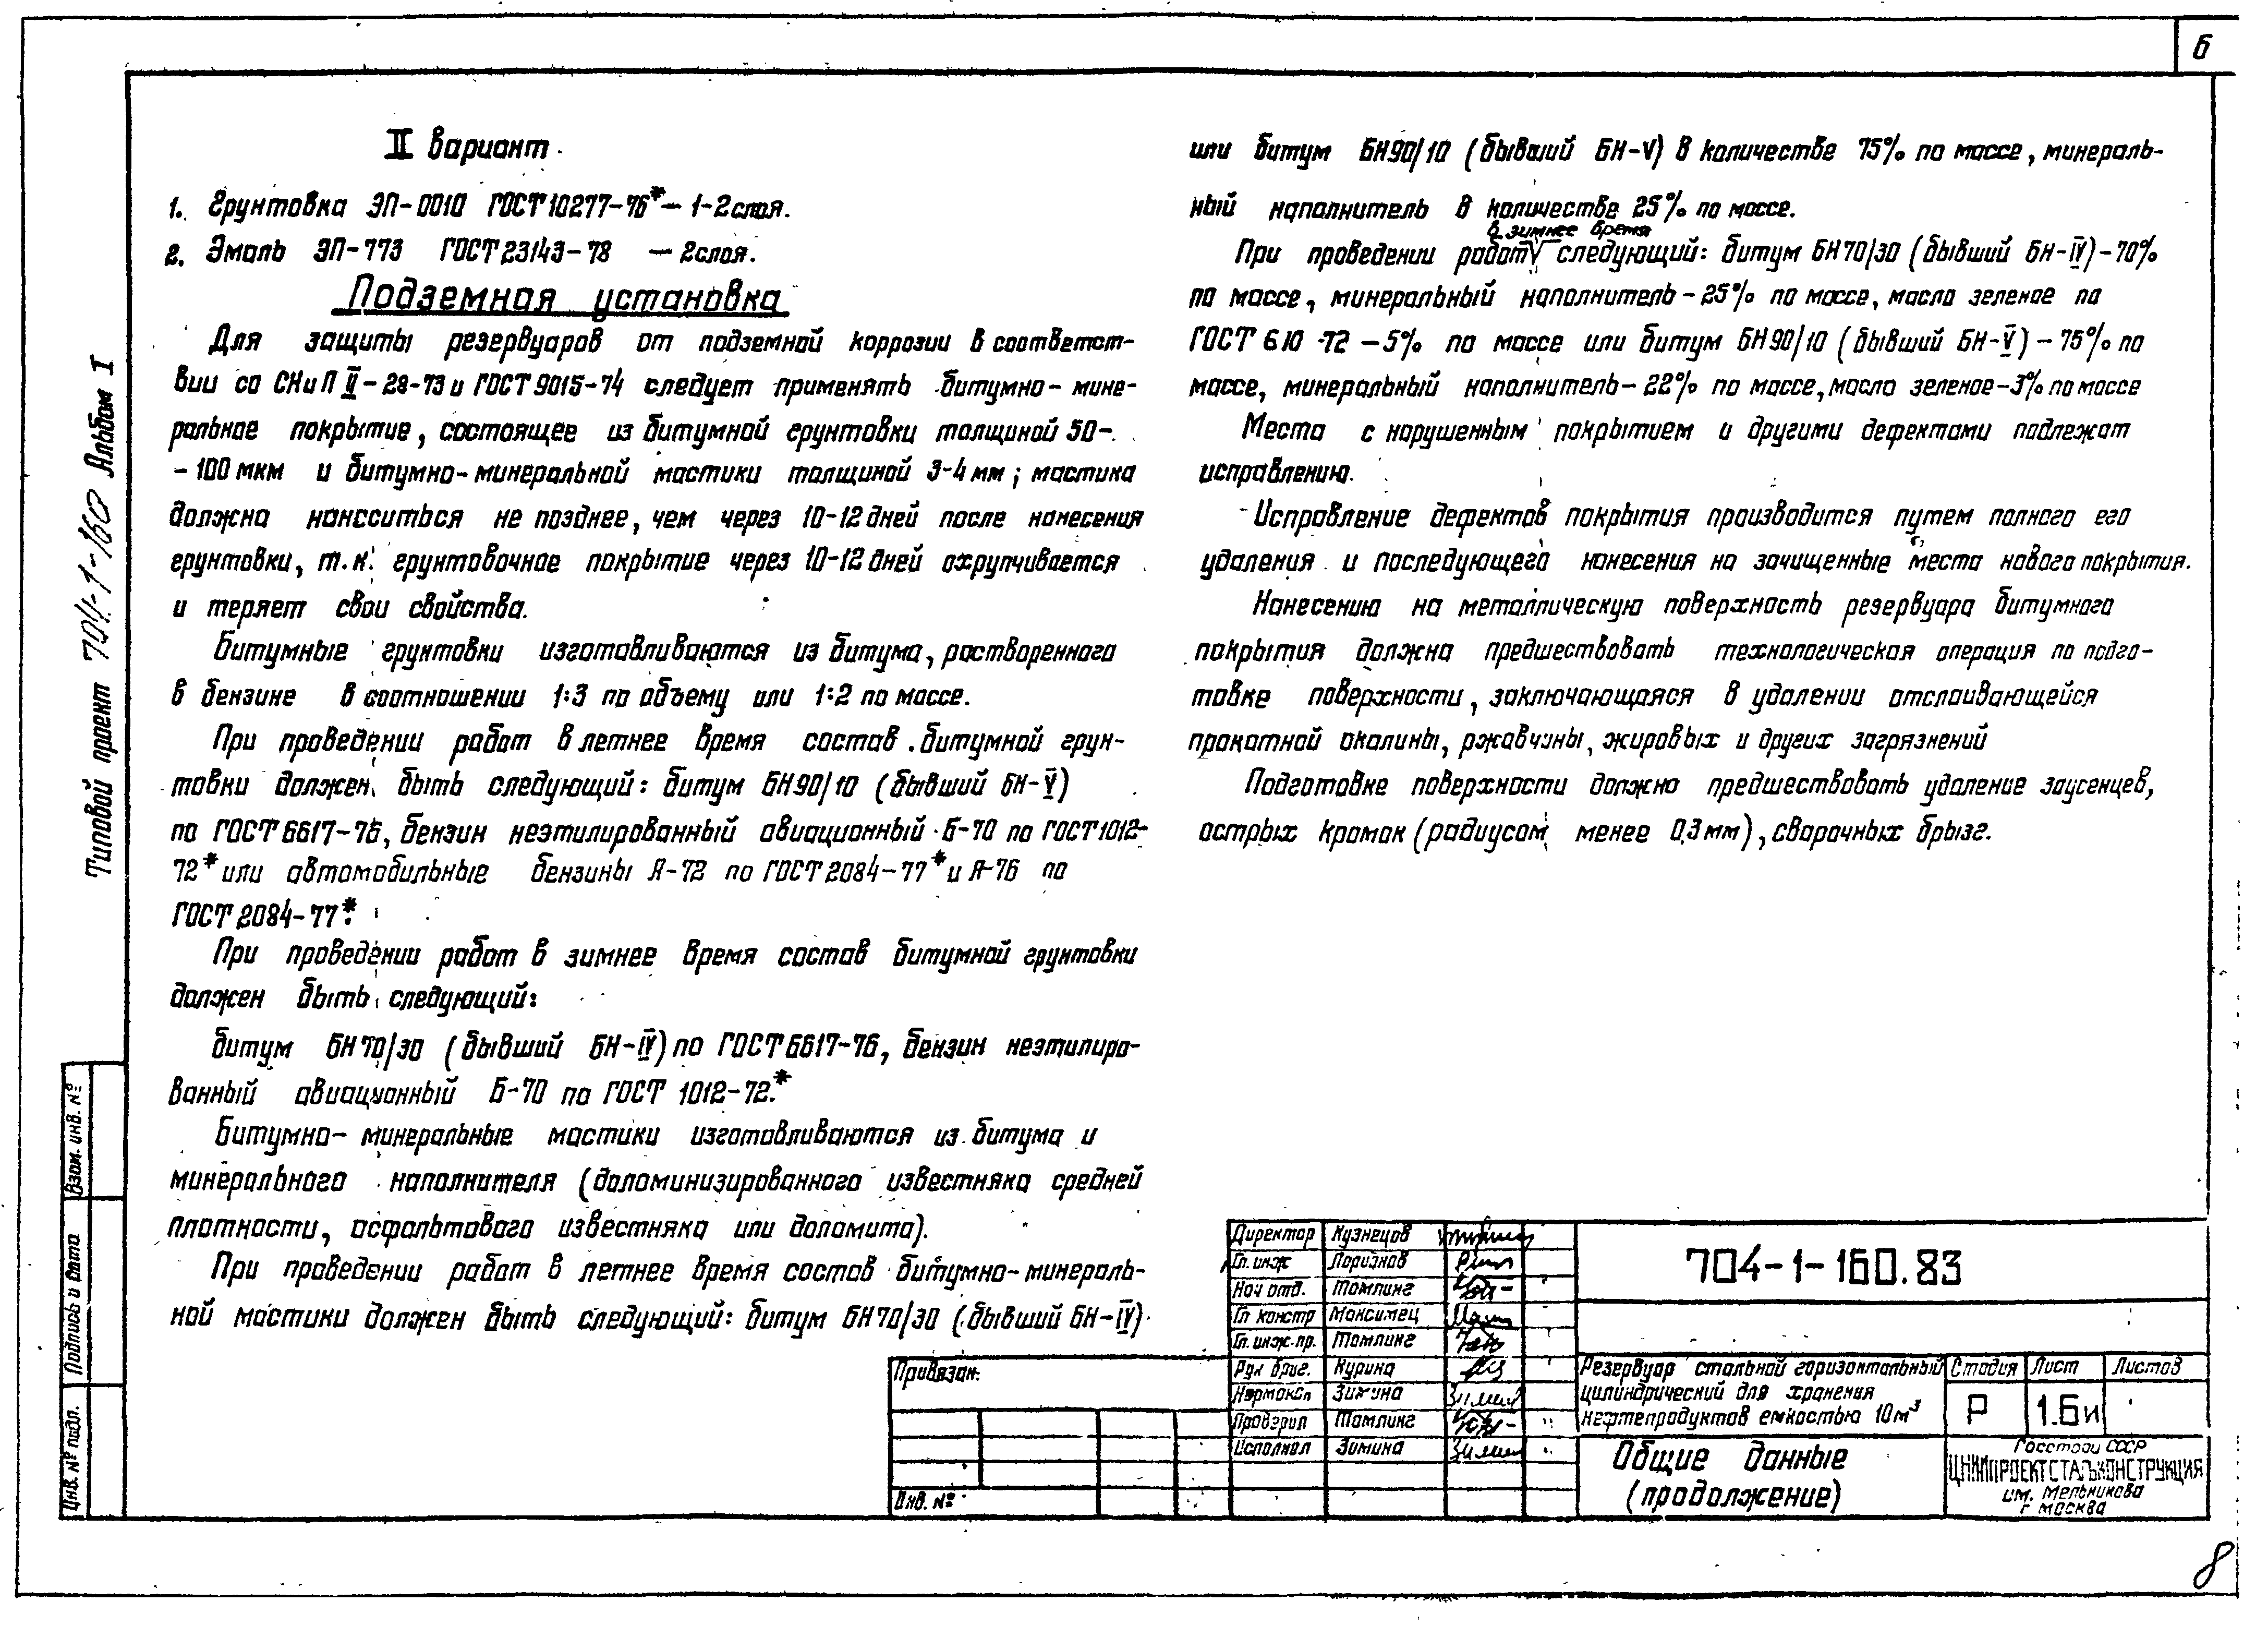 6
II вариант
1. Грунтовка ЭП-0010 ГОСТ 10277-76* - 1-2 слоя.
2. Эмаль ЭП-773 ГОСТ 23143-78 - 2 слоя.
Подземная установка
Для защиты резервуаров от подземной коррозии в соответст-
вии со СНиП II-28-73 и ГОСТ 9015-74 следует применять битумно-мине-
ральное покрытие, состоящее из битумной грунтовки толщиной 50-
-100 мкм и битумно-минеральной мастики толщиной 3-4 мм; мастика
должна наноситься не позднее, чем через 10-12 дней после нанесения
грунтовки, т.к. грунтовочное покрытие через 10-12 дней охрупчивается
и теряет свои свойства.
Битумные грунтовки изготавливаются из битума, растворенного
в бензине в соотношении 1:3 по объему или 1:2 по массе.
При проведении работ в летнее время состав битумной грун-
товки должен быть следующий: битум БН 90/10 (бывший БН-V)
по ГОСТ 6617-76, бензин неэтилированный авиационный Б-70 по ГОСТ 1012-
72* или автомобильные бензины А-72 по ГОСТ 2084-77* и А-76 по
ГОСТ 2084-77*.
При проведении работ в зимнее время состав битумной грунтовки
должен быть следующий:
битум БН 70/30 (бывший БН-IV) по ГОСТ 6617-76, бензин неэтилиро-
ванный авиационный Б-70 по ГОСТ 1012-72.*
Битумно-минеральные мастики изготавливаются из битума и
минерального наполнителя (доломинизированного известняка средней
плотности, асфальтового известняка или доломита).
При проведении работ в летнее время состав битумно-минераль-
ной мастики должен быть следующий: битум БН 70/30 (бывший БН-IV)
или битум БН 90/10 (бывший БН-V) в количестве 75% по массе, минераль-
ный наполнитель в количестве 25% по массе.
в зимнее время
При проведении работ V следующий: битум БН 70/30 (бывший БН-IV) - 70%
по массе, минеральный наполнитель - 25% по массе, масло зеленое по
ГОСТ 610-72 - 5% по массе или битум БН 90/10 (бывший БН-V) - 75% по
массе, минеральный наполнитель - 22% по массе, масло зеленое - 3% по массе
Места с нарушенным покрытием и другими дефектами подлежат
исправлению.
Исправление дефектов покрытия производится путем полного его
удаления и последующего нанесения на зачищенные места нового покрытия.
Нанесению на металлическую поверхность резервуара битумного
покрытия должна предшествовать технологическая операция по подго-
товке поверхности, заключающаяся в удалении отслаивающейся
прокатной окалины, ржавчины, жировых и других загрязнений
Подготовке поверхности должно предшествовать удаление заусенцев,
острых кромок (радиусом менее 0,3 мм), сварочных брызг.
Типовой проект 704-1-160 Альбом I
Взам. инв. №
Подпись и дата
Инв. № подл.
Привязан:
Инв. №
Директор Кузнецов
Гл. инж
Нач отд. Томлинг
Гл констр Максимец
Гл. инж. пр. Томлинг
Рук бриг. Курина
Зимина
Проверил Томлинг
Исполнил Зимина
704-1-160.83
Резервуар стальной горизонтальный
цилиндрический для хранения
нефтепродуктов емкостью 10 м³
Стадия Лист Листов
Р 1.6и
Общие данные
(продолжение)
Госстрой СССР
ЦНИИПРОЕКТСТАЛЬКОНСТРУКЦИЯ
им. Мельникова
г Москва
8